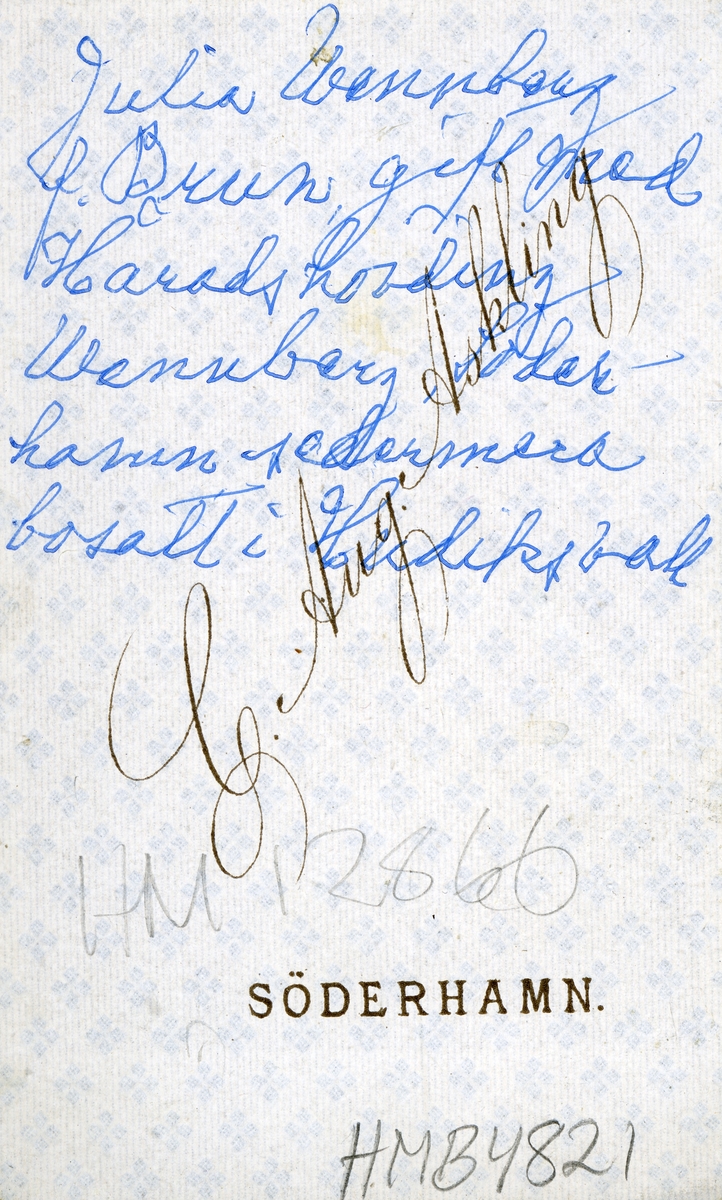 Julia Wennberg
f. Brun, gift med
Häradshövding
Wennberg Söder-
hamn sedermera
bosatt i Hudiksvall
G. Aug. Askling
HM 12866
SÖDERHAMN.
HMB4821